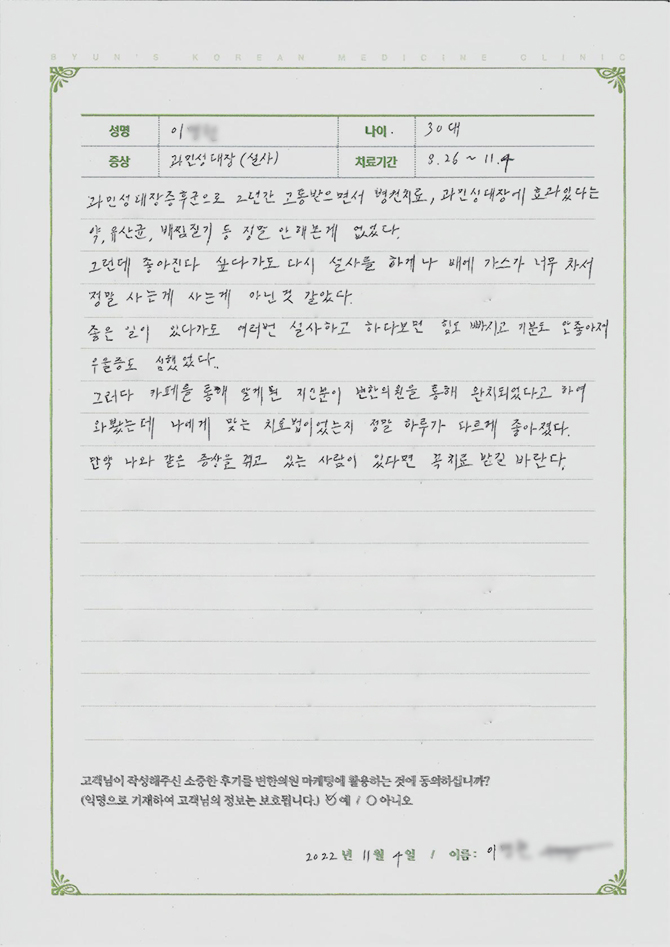 BYUN'S KOREAN MEDICINE CLINIC
성명 이 나이 30대
증상 과민성대장(설사) 치료기간 8.26 ~ 11.4
과민성대장증후군으로 2년간 고통받으면서 병원치료, 과민성대장에 효과있다는
약, 유산균, 배찜질기 등 정말 안해본게 없었다.
그런데 좋아진다 싶다가도 다시 설사를 하게나 배에 가스가 너무 차서
정말 사는게 사는게 아닌것 같았다.
좋은 일이 있다가도 여러번 설사하고 하다보면 힘도 빠지고 기분도 안좋아져
우울증도 심했었다..
그러다 카페를 통해 알게된 지인분이 변한의원을 통해 완치되었다고 하여
와봤는데 나에게 맞는 치료법이었는지 정말 하루가 다르게 좋아졌다.
만약 나와 같은 증상을 겪고 있는 사람이 있다면 꼭 치료 받길 바란다.
고객님이 작성해주신 소중한 후기를 변한의원 마케팅에 활용하는 것에 동의하십니까?
(익명으로 기재하여 고객님의 정보는 보호됩니다.) 예 / 아니오
2022년 11월 4일 / 이름: 이